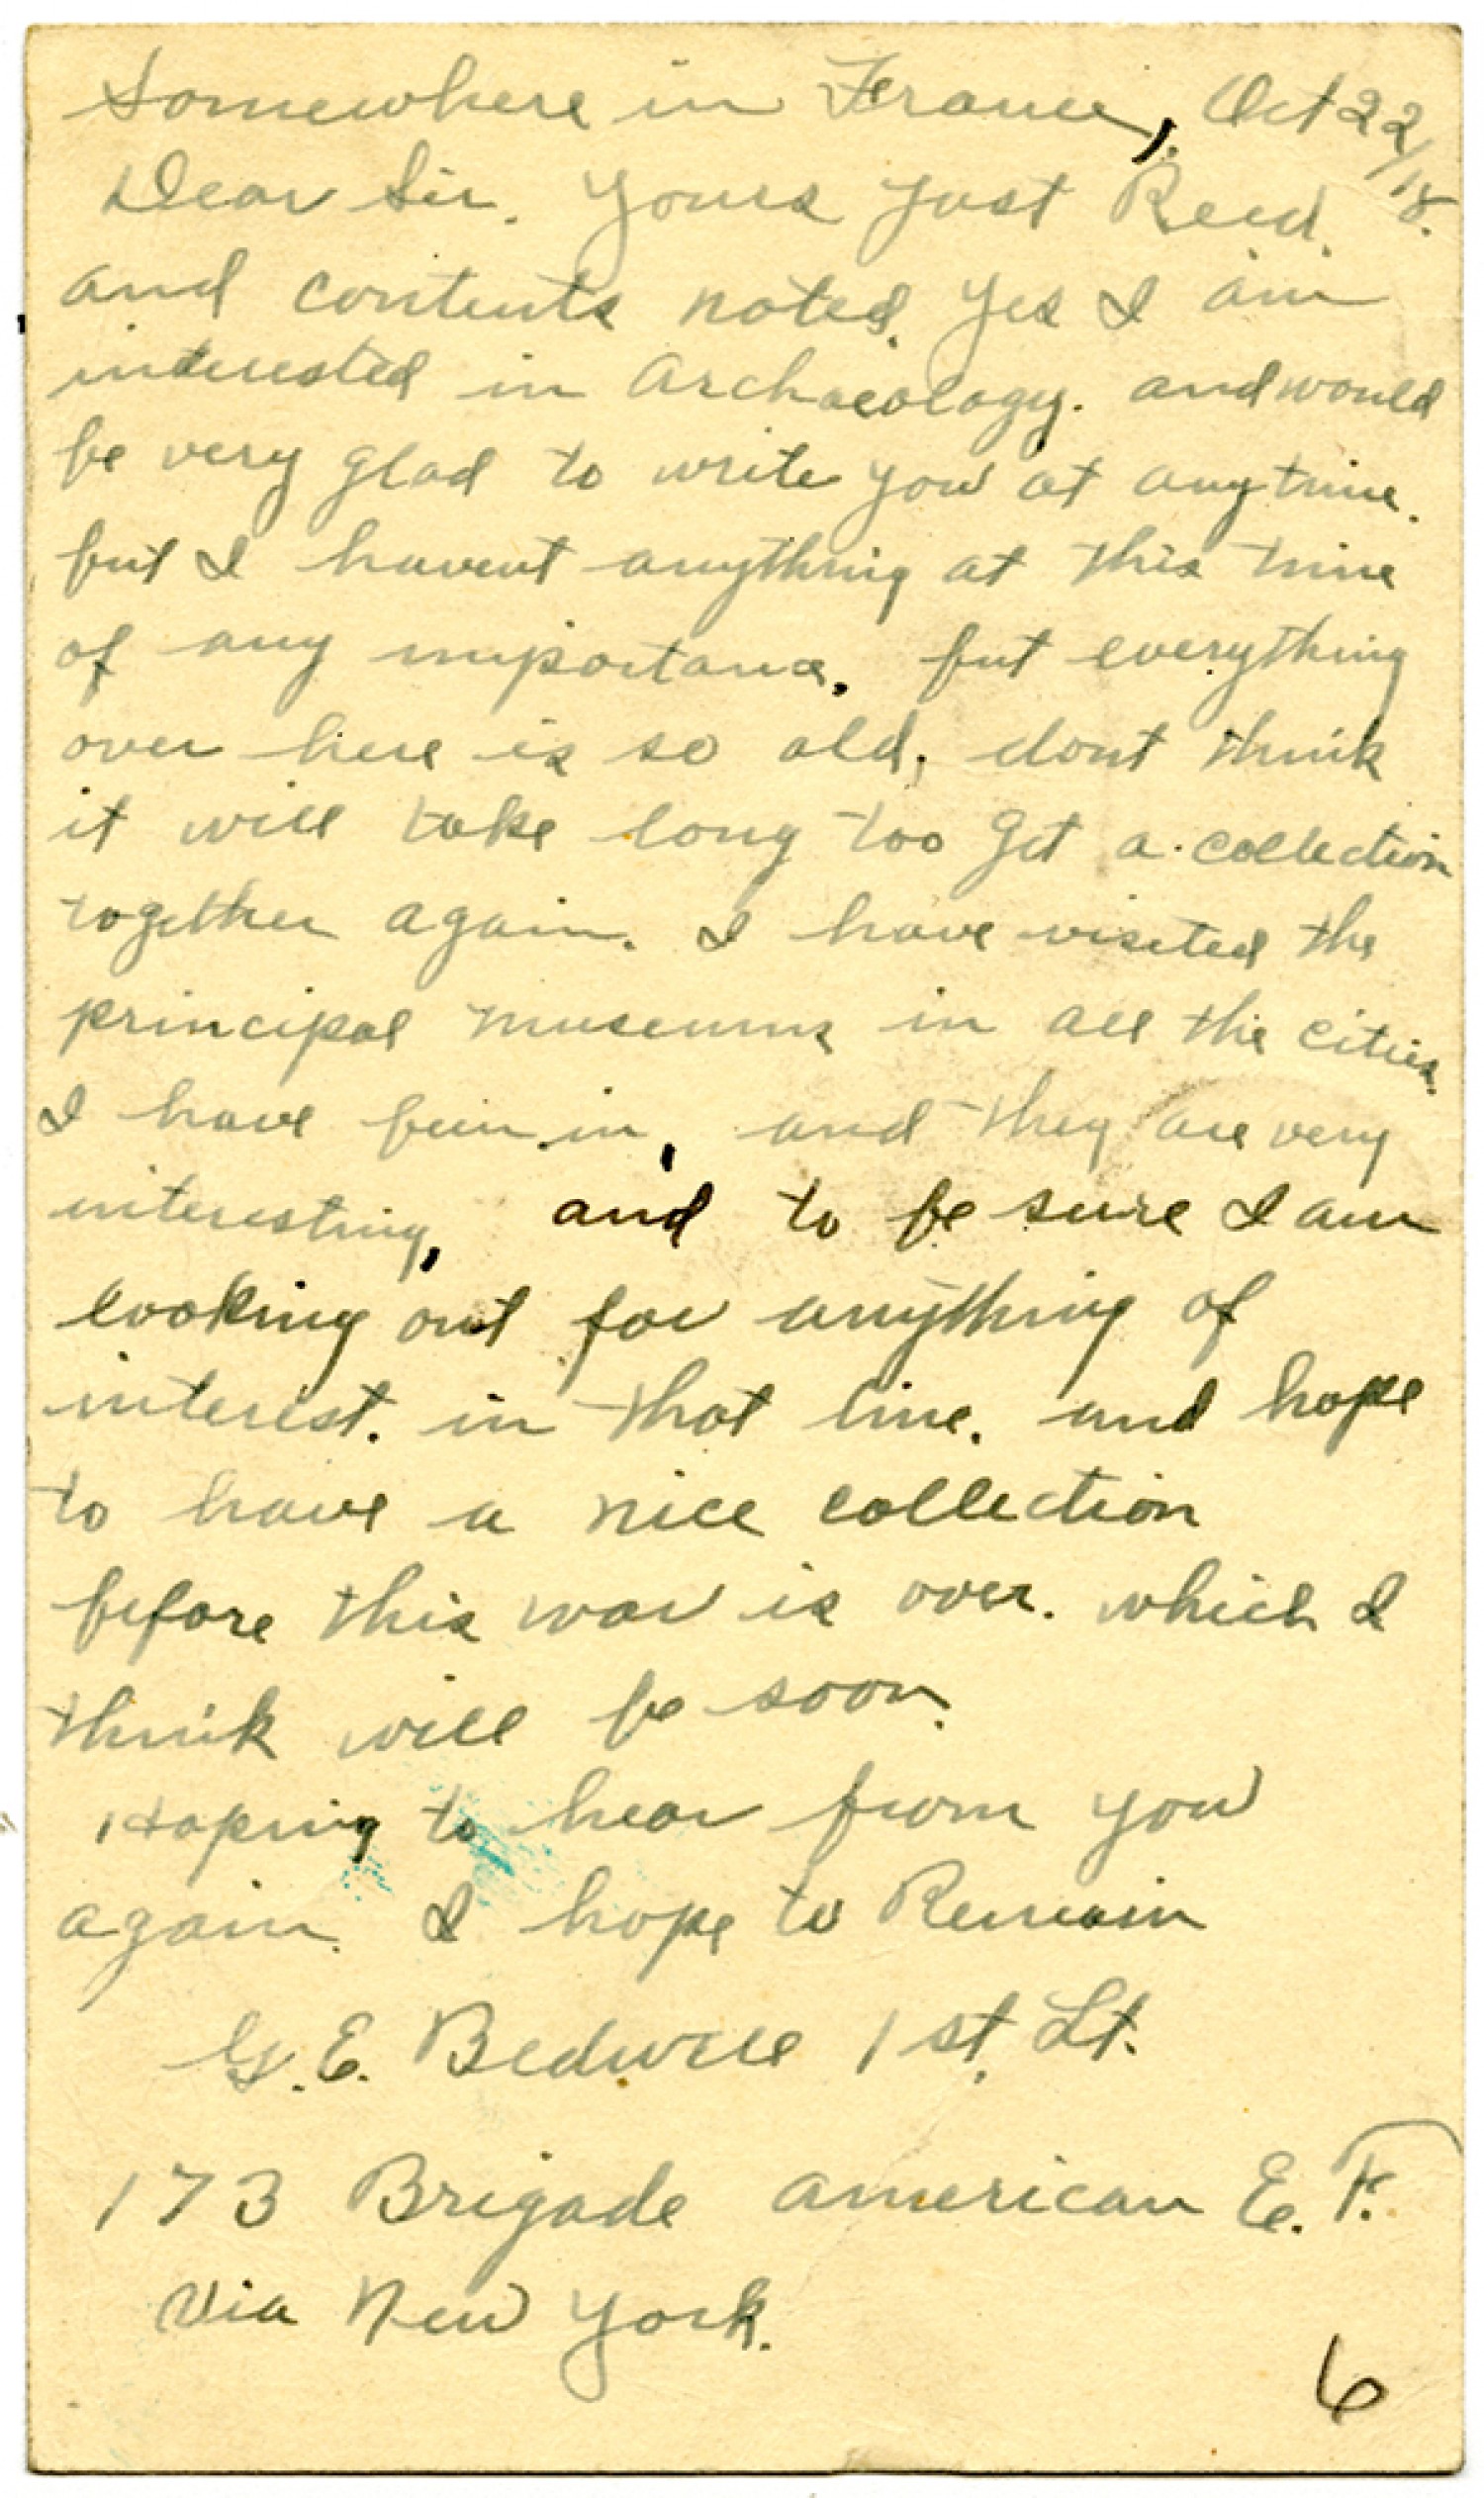 Somewhere in France, Oct 22/18.
Dear Sir. Yours just Recd.
and contents noted. Yes I am
interested in Archaeology. and would
be very glad to write you at any time.
but I havent anything at this time
of any importance. but everything
over here is so old, dont think
it will take long too get a collection
together again. I have visited the
principal museums in all the cities.
I have been in, and they are very
interesting, and to be sure I am
looking out for anything of
interest. in that line. and hope
to have a nice collection
before this war is over. which I
think will be soon.
Hoping to hear from you
again. I hope to Remain
G. E. Bedwell 1st. Lt.
173 Brigade American E. F.
Via New York.
6